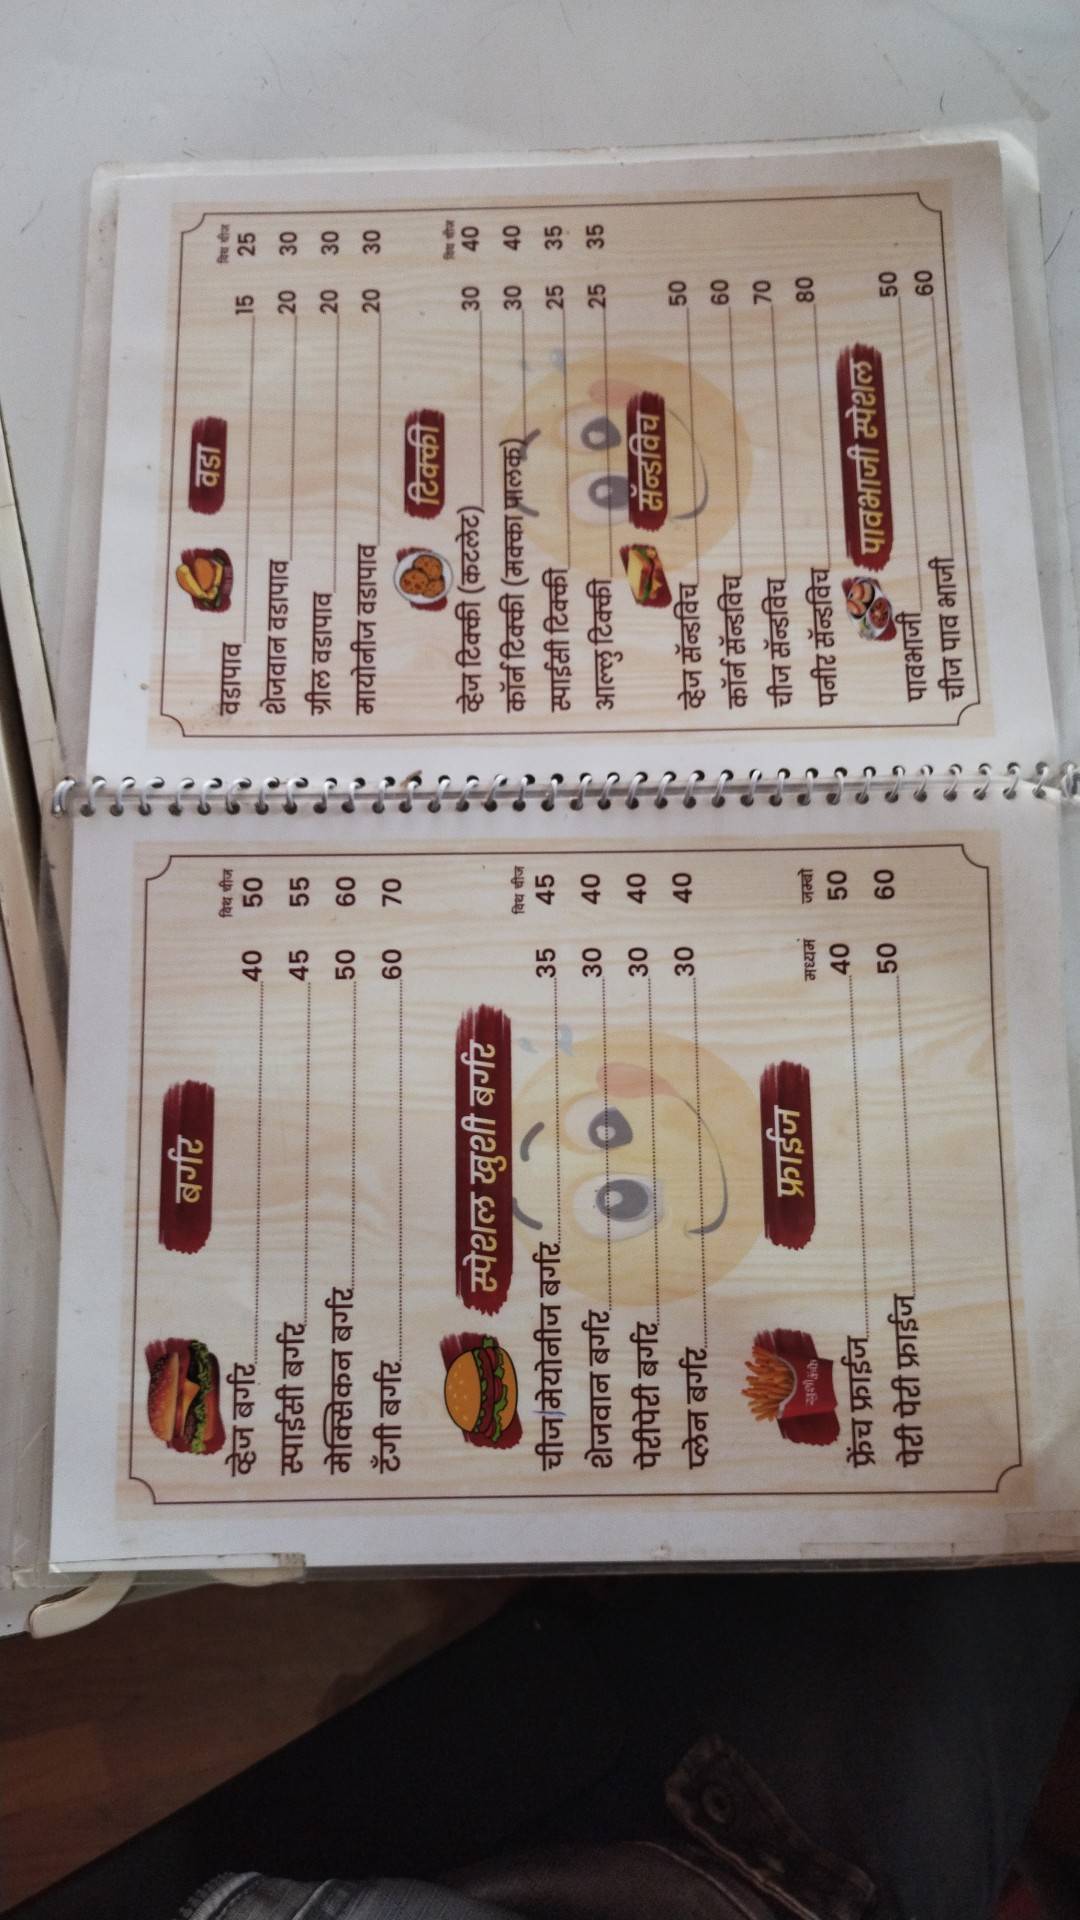 बर्गर
विथ चीज
व्हेज बर्गर 40 50
स्पाईसी बर्गर 45 55
मेक्सिकन बर्गर 50 60
टँगी बर्गर 60 70
स्पेशल खुशी बर्गर
विथ चीज
चीज/मेयोनीज बर्गर 35 45
शेजवान बर्गर 30 40
पेरीपेरी बर्गर 30 40
प्लेन बर्गर 30 40
फ्राईज
मध्यमं जम्बो
फ्रेंच फ्राईज 40 50
पेरी पेरी फ्राईज 50 60
वडा
विथ चीज
वडापाव 15 25
शेजवान वडापाव 20 30
ग्रील वडापाव 20 30
मायोनीज वडापाव 20 30
टिक्की
विथ चीज
व्हेज टिक्की (कटलेट) 30 40
कॉर्न टिक्की (मक्का पालक) 30 40
स्पाईसी टिक्की 25 35
आल्लु टिक्की 25 35
सॅन्डविच
व्हेज सॅन्डविच 50
कॉर्न सॅन्डविच 60
चीज सॅन्डविच 70
पनीर सॅन्डविच 80
पावभाजी स्पेशल
पावभाजी 50
चीज पाव भाजी 60